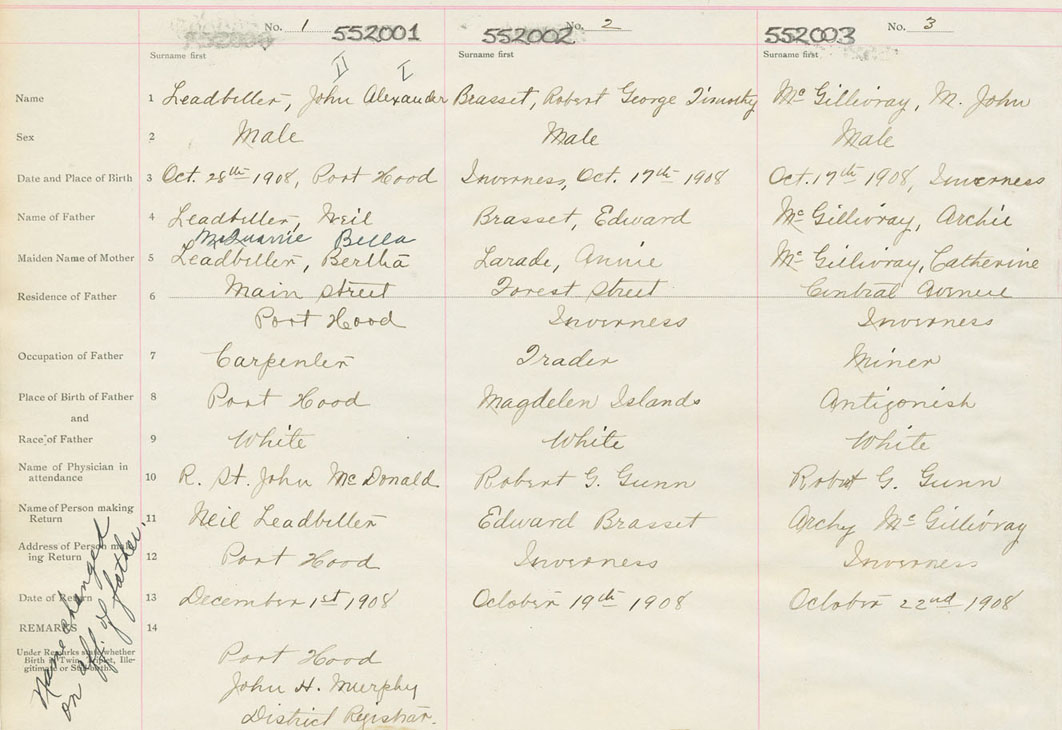 No. 1 552001 552002 No. 2 552003 No. 3
Surname first Surname first Surname first
II I
Name 1 Leadbetter, John Alexander Brasset, Robert George Timothy McGillivray, M. John
Sex 2 Male Male Male
Date and Place of Birth 3 Oct. 28th 1908, Port Hood Inverness, Oct. 17th 1908 Oct. 17th 1908, Inverness
Name of Father 4 Leadbetter, Neil Brasset, Edward McGillivray, Archie
Bella
Maiden Name of Mother 5 Leadbetter, Bertha Larade, Annie McGillivray, Catherine
Residence of Father 6 Main Street Forest Street Central Avenue
Port Hood Inverness Inverness
Occupation of Father 7 Carpenter Trader Miner
Place of Birth of Father 8 Port Hood Magdelen Islands Antigonish
and
Race of Father 9 White White White
Name of Physician in
attendance 10 R. St. John McDonald Robert G. Gunn Robert G. Gunn
Name of Person making
Return 11 Neil Leadbetter Edward Brasset Archy McGillivray
Address of Person mak-
ing Return 12 Port Hood Inverness Inverness
Date of Return 13 December 1st 1908 October 19th 1908 October 22nd 1908
REMARKS 14
Under Remarks state whether
Birth is Twin, Triplet, Ille-
gitimate or Still-birth.
Port Hood
John H. Murphy
District Registrar.
Name changed
on aff. of father.